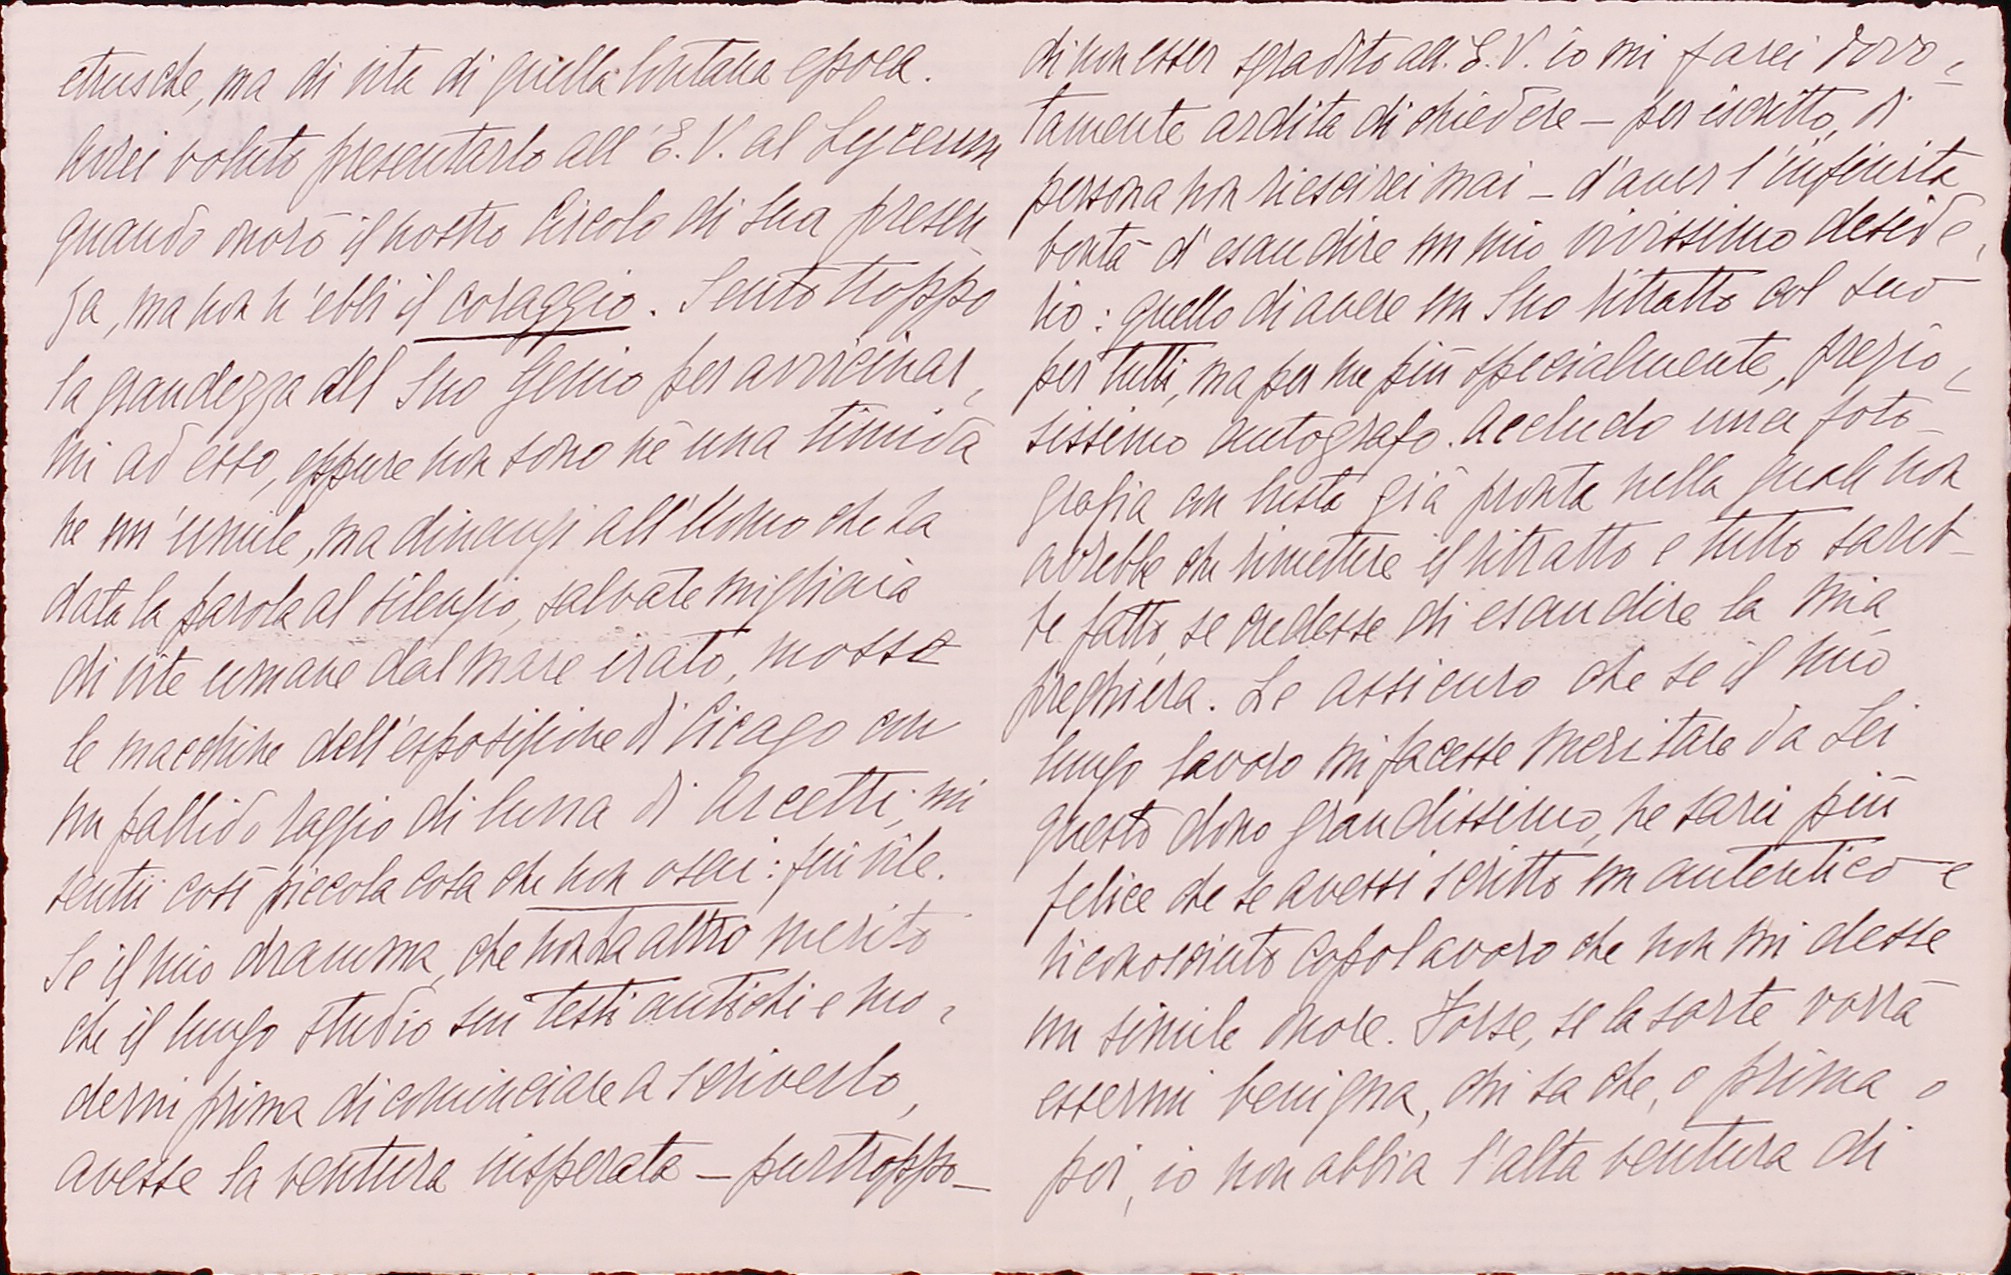 etrusche, ma di vita di quella lontana epoca.
Avrei voluto presentarlo all'E.V. al Lyceum
quando onorò il nostro Circolo di Sua presen-
za, ma non n'ebbi il coraggio. Sento troppo
la grandezza del Suo Genio per avvicinar,
mi ad esso, eppure non sono nè una timida
nè un'umile, ma dinanzi all'Uomo che ha
data la parola al silenzio, salvate migliaia
di vite umane dal mare irato, mosse
le macchine dell'esposizione di Cicago con
un pallido raggio di luna di Arcetri, mi
sentii così piccola cosa che non osai: fui vile.
Se il mio dramma, che non ha altro merito
che il lungo studio sui testi antichi e mo,
derni prima di cominciare a scriverlo,
avesse la ventura insperata – purtroppo –
di non esser sgradito all'E.V. io mi farei devo,
tamente ardita di chiedere – per iscritto, di
persona non riescirei mai – d'aver l'infinita
bontà d'esaudire un mio vivissimo deside,
rio: quello di avere un Suo ritratto col suo
per tutti, ma per me più specialmente, prezio,
sissimo autografo. Accludo una foto-
grafia con busta già pronta nella quale non
avrebbe che rimettere il ritratto e tutto sareb-
be fatto, se credesse di esaudire la mia
preghiera. Le assicuro che se il mio
lungo lavoro mi facesse meritare da Lei
questo dono grandissimo, ne sarei più
felice che se avessi scritto un autentico e
riconosciuto capolavoro che non mi desse
un simile onore. Forse, se la sorte vorrà
essermi benigna, chi sa che, o prima o
poi, io non abbia l'alta ventura di